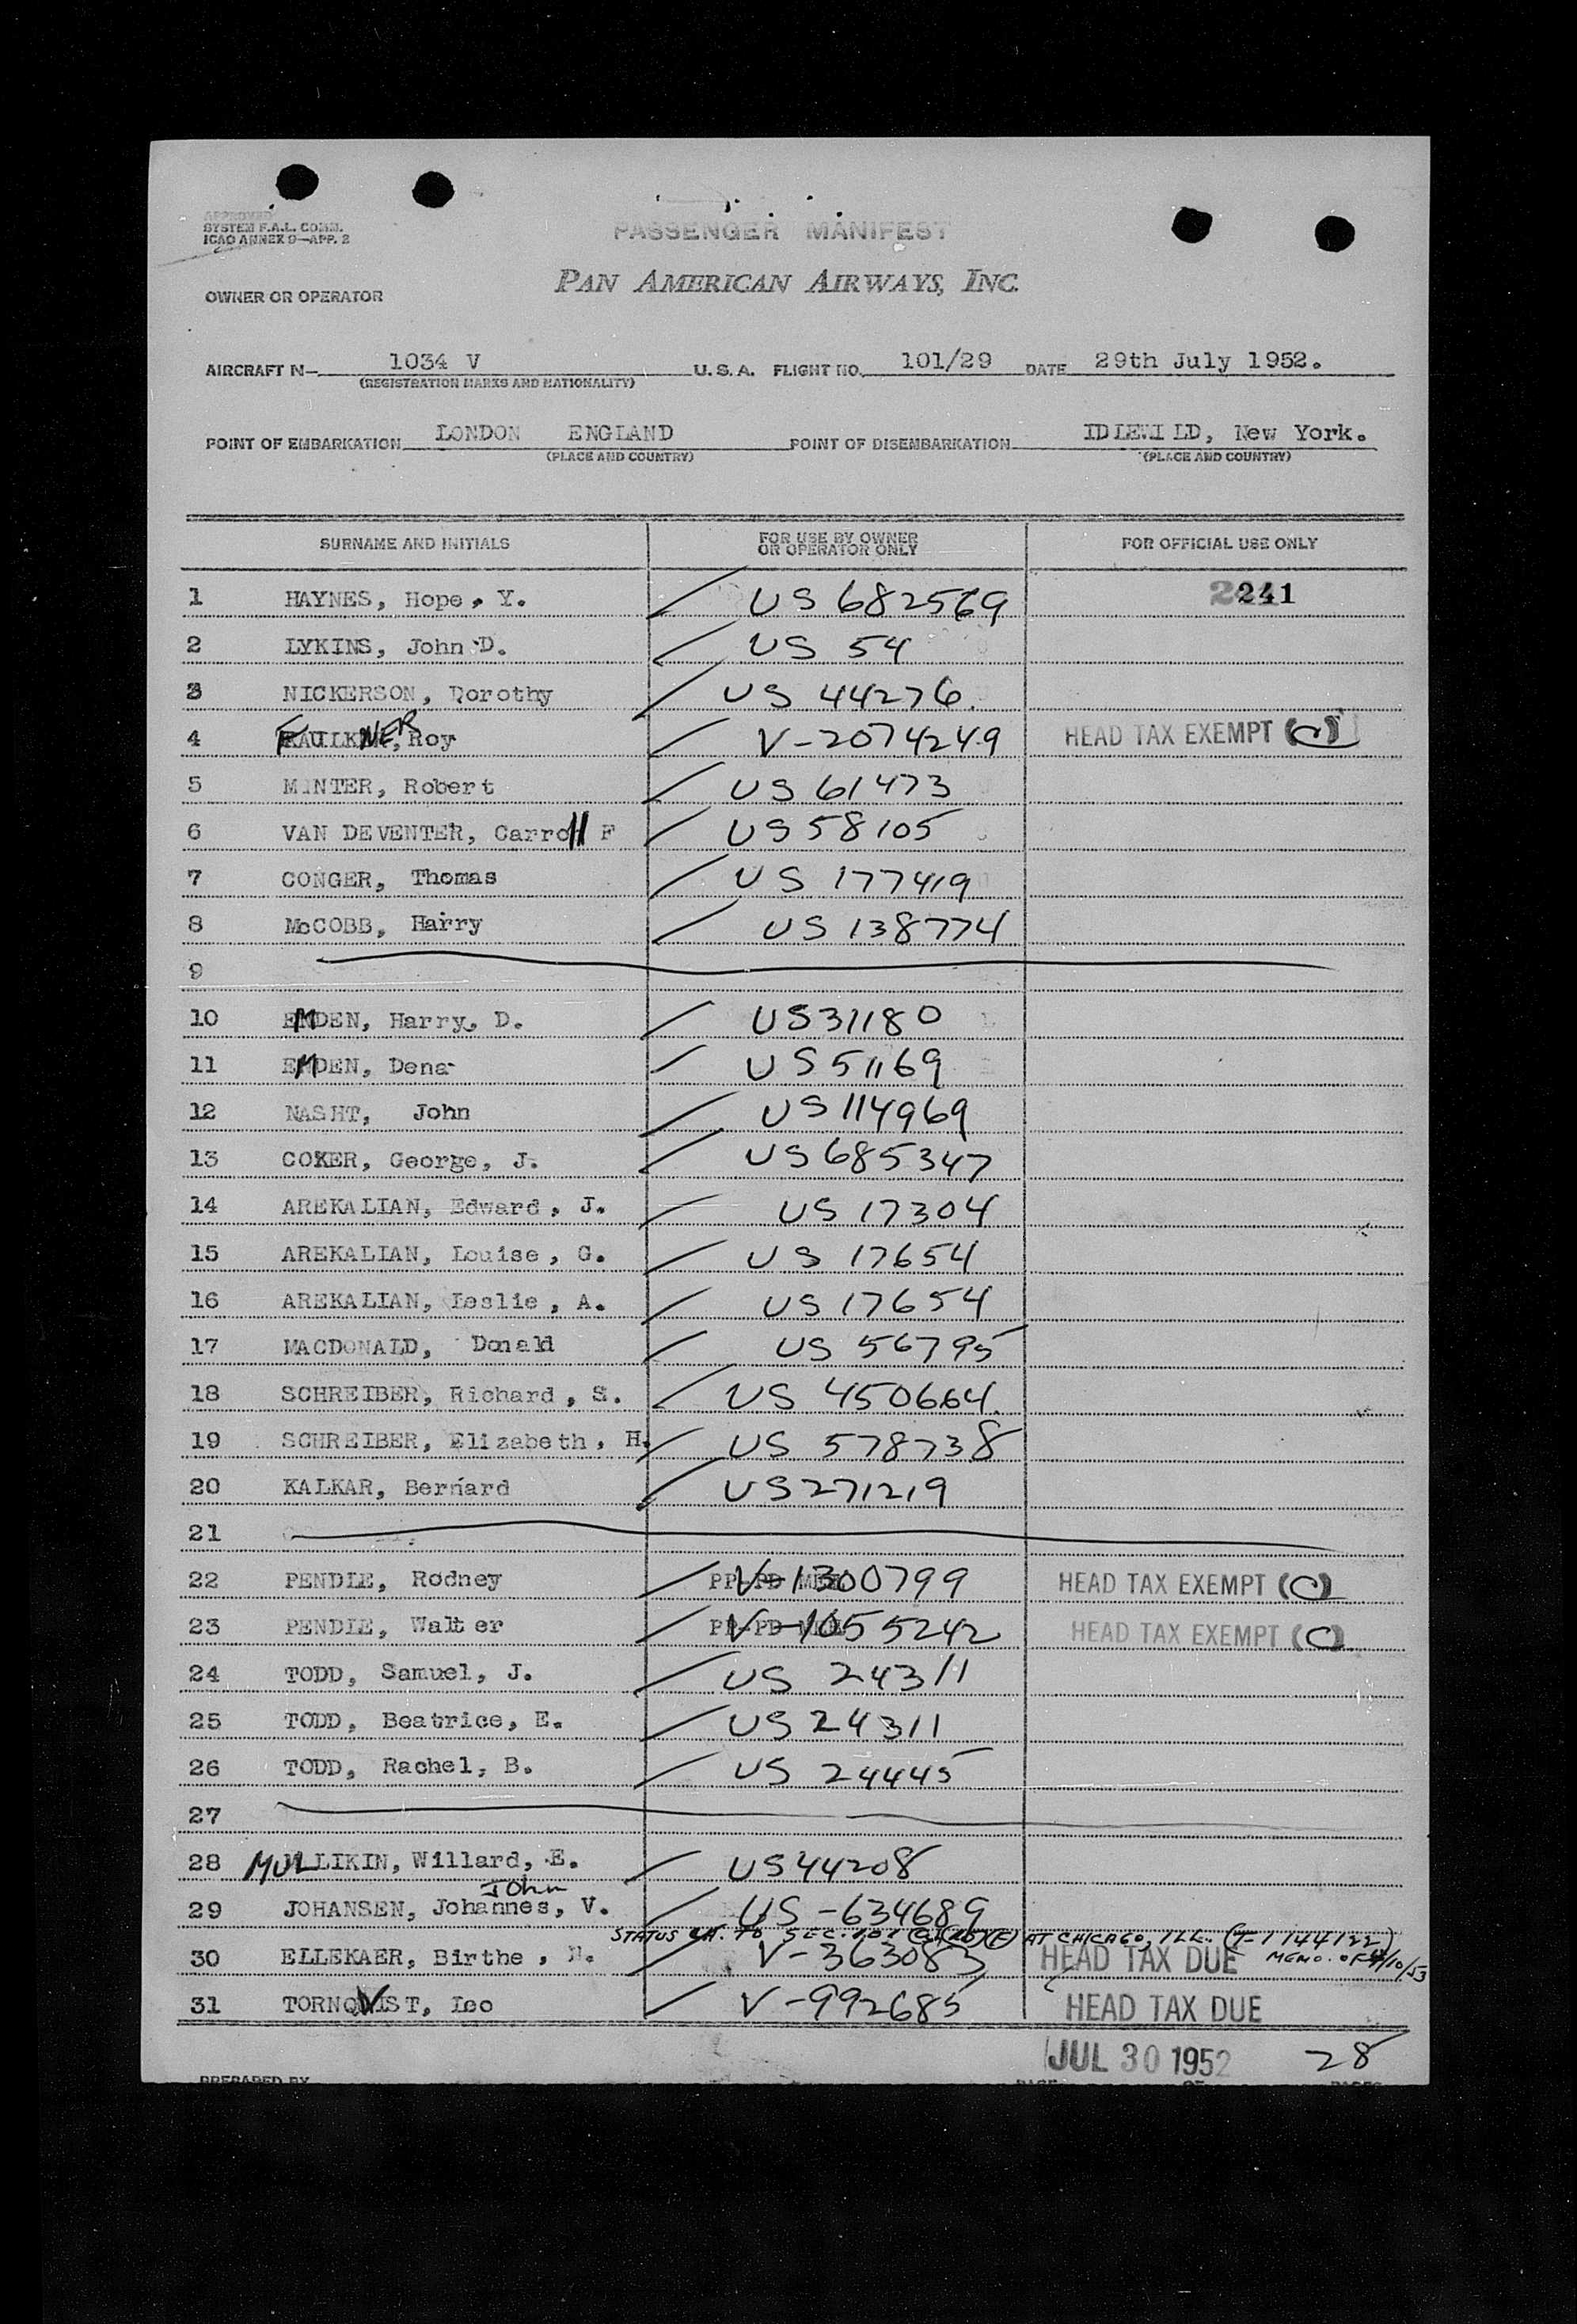 APPROVED
SYSTEM F.A.L. COMM.
ICAO ANNEX 9—APP. 2
PASSENGER MANIFEST
PAN AMERICAN AIRWAYS, INC.
OWNER OR OPERATOR
AIRCRAFT N— 1034 V U.S.A. FLIGHT NO. 101/29 DATE 29th July 1952.
(REGISTRATION MARKS AND NATIONALITY)
POINT OF EMBARKATION LONDON ENGLAND POINT OF DISEMBARKATION IDLEWILD, New York.
(PLACE AND COUNTRY) (PLACE AND COUNTRY)
SURNAME AND INITIALS FOR USE BY OWNER OR OPERATOR ONLY FOR OFFICIAL USE ONLY
1 HAYNES, Hope, Y. US 682569 241
2 LYKINS, John D. US 54
3 NICKERSON, Dorothy US 44276
4 FAULKNER, Roy V-2074249 HEAD TAX EXEMPT (C)
5 MINTER, Robert US 61473
6 VAN DEVENTER, Carroll F US 58105
7 CONGER, Thomas US 177419
8 McCOBB, Harry US 138774
9
10 EMDEN, Harry, D. US 31180
11 EMDEN, Dena US 51169
12 NASHT, John US 114969
13 COKER, George, J. US 685347
14 AREKALIAN, Edward, J. US 17304
15 AREKALIAN, Louise, G. US 17654
16 AREKALIAN, Leslie, A. US 17654
17 MACDONALD, Donald US 56795
18 SCHREIBER, Richard, S. US 450664
19 SCHREIBER, Elizabeth, H. US 578738
20 KALKAR, Bernard US 271219
21
22 PENDLE, Rodney V-1300799 HEAD TAX EXEMPT (C)
23 PENDLE, Walter V-1055242 HEAD TAX EXEMPT (C)
24 TODD, Samuel, J. US 24311
25 TODD, Beatrice, E. US 24311
26 TODD, Rachel, B. US 24445
27
28 MULLIKIN, Willard, E. US 44208
John
29 JOHANSEN, Johannes, V. US-634689
STATUS CH. TO SEC. 101 AT CHICAGO, ILL. (T-1144122)
30 ELLEKAER, Birthe, N. V-363083 HEAD TAX DUE MEMO. OF 4/10/53
31 TORNQVIST, Leo V-992685 HEAD TAX DUE
JUL 30 1952 28
PREPARED BY